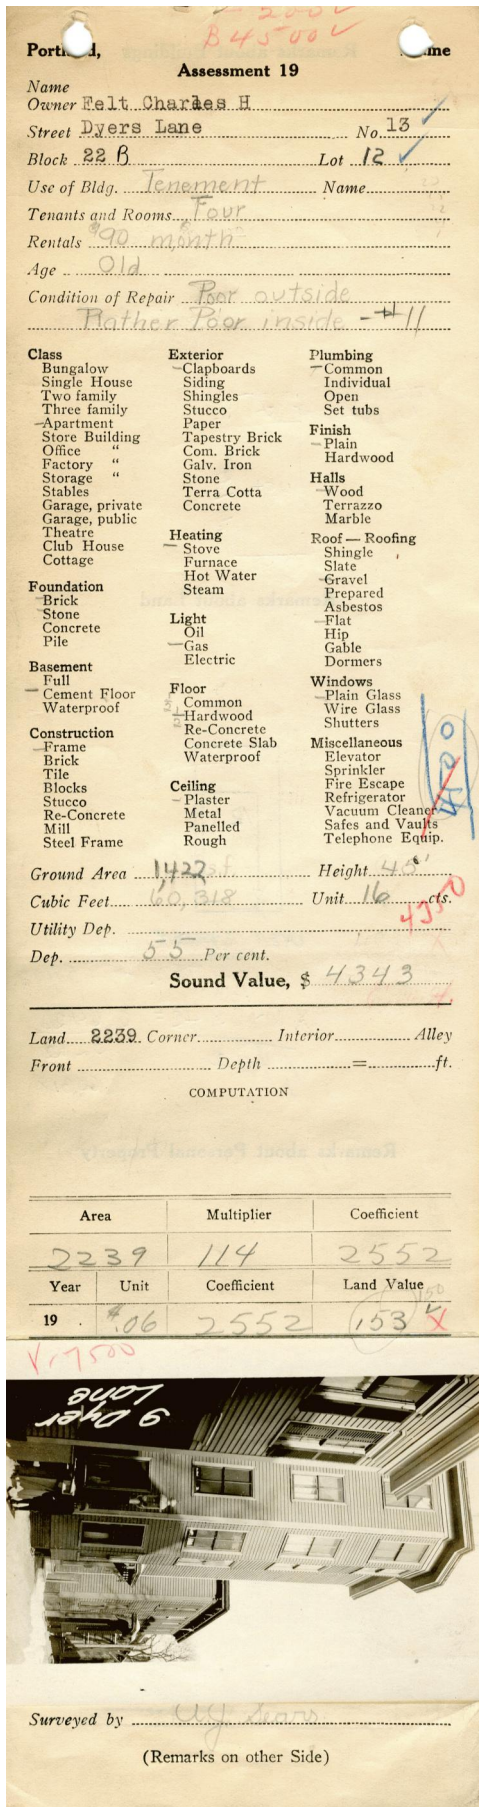 - 200 ✓
B 4500 ✓
Portland, Maine
Assessment 19
Name
Owner Felt Charles H
Street Dyers Lane No. 13 ✓
Block 22 B Lot 12 ✓
Use of Bldg. Tenement Name
Tenants and Rooms Four
Rentals $90 month
Age Old
Condition of Repair Poor outside
Rather Poor inside - #11
Class
Bungalow
Single House
Two family
Three family
Apartment
Store Building
Office "
Factory "
Storage "
Stables
Garage, private
Garage, public
Theatre
Club House
Cottage
Foundation
Brick
Stone
Concrete
Pile
Basement
Full
Cement Floor
Waterproof
Construction
Frame
Brick
Tile
Blocks
Stucco
Re-Concrete
Mill
Steel Frame
Exterior
Clapboards
Siding
Shingles
Stucco
Paper
Tapestry Brick
Com. Brick
Galv. Iron
Stone
Terra Cotta
Concrete
Heating
Stove
Furnace
Hot Water
Steam
Light
Oil
Gas
Electric
Floor
½ Common
½ Hardwood
Re-Concrete
Concrete Slab
Waterproof
Ceiling
Plaster
Metal
Panelled
Rough
Plumbing
Common
Individual
Open
Set tubs
Finish
Plain
Hardwood
Halls
Wood
Terrazzo
Marble
Roof — Roofing
Shingle
Slate
Gravel
Prepared
Asbestos
Flat
Hip
Gable
Dormers
Windows
Plain Glass
Wire Glass
Shutters
Miscellaneous
Elevator
Sprinkler
Fire Escape
Refrigerator
Vacuum Cleaner
Safes and Vaults
Telephone Equip.
4500
Ground Area 1422 Height 45'
Cubic Feet 60,318 Unit 16 cts.
4350
Utility Dep.
Dep. 55 Per cent.
Sound Value, $ 4343
Land 2239 Corner Interior Alley
Front Depth = ft.
COMPUTATION
Area Multiplier Coefficient
2239 114 2552
Year Unit Coefficient Land Value
19 $.06 2552 153 ✓ X
150
V. 7500
9 Dyer
Lane
Surveyed by AJ Sears
(Remarks on other Side)